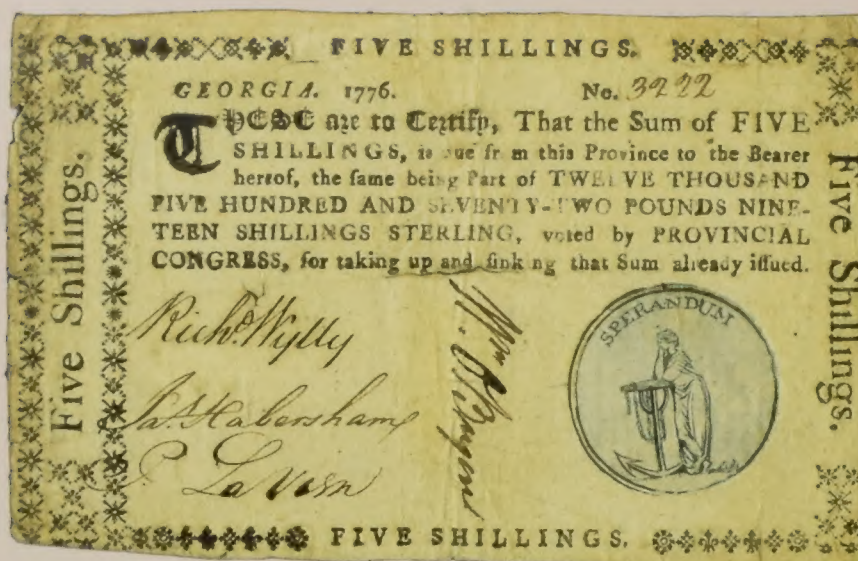 FIVE SHILLINGS.
GEORGIA. 1776. No. 3222
THESE are to Certify, That the Sum of FIVE
SHILLINGS, is due from this Province to the Bearer
hereof, the same being Part of TWELVE THOUSAND
FIVE HUNDRED AND SEVENTY-TWO POUNDS NINE-
TEEN SHILLINGS STERLING, voted by PROVINCIAL
CONGRESS, for taking up and sinking that Sum already issued.
Five Shillings.
Five Shillings.
Richd. Wylly
Jas. Habersham
P. Lavien
Wm.
SPERANDUM
FIVE SHILLINGS.